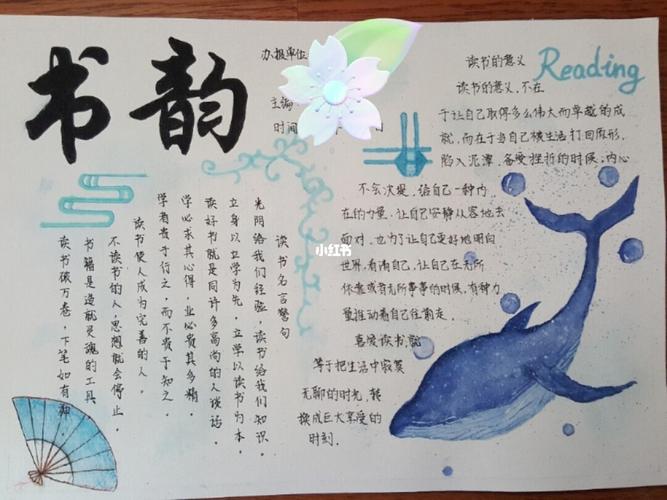 书韵
办报单位
主编
时间
Reading
读书的意义
读书的意义,不在
于让自己取得多么伟大而卓越的成
就,而在于当自己被生活打回原形,
陷入泥潭,备受挫折的时候,内心
不会次堤,给自己一种内
在的力量,让自己安静从容地去
面对,也为了让自己更好地明白
世界,看清自己,让自己在无所
依靠或者无所事事的时候,有种力
量推动着自己往前走。
喜爱读书,就
等于把生活中寂寞
无聊的时光,转
换成巨大享受的
时刻.
读书名言警句
光阴给我们经验,读书给我们知识。
立身以立学为先,立学以读书为本,
读好书就是同许多高尚的人谈话,
学必求其心得,业必贵其多精,
学者贵于行之,而不贵于知之,
读书使人成为完善的人,
不读书的人,思想就会停止,
书籍是造就灵魂的工具
读书破万卷,下笔如有神
小红书